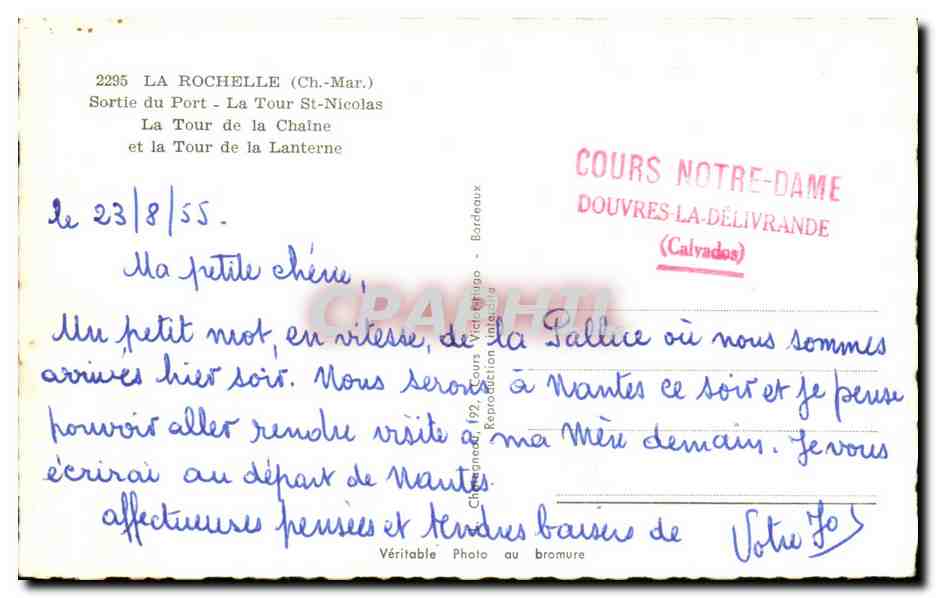 2295 LA ROCHELLE (Ch.-Mar.)
Sortie du Port - La Tour St-Nicolas
La Tour de la Chaîne
et la Tour de la Lanterne
COURS NOTRE-DAME
DOUVRES-LA-DÉLIVRANDE
(Calvados)
le 23/8/55.
Ma petite chérie,
Un petit mot, en vitesse, de la Pallice où nous sommes
arrivés hier soir. Nous serons à Nantes ce soir et je pense
pouvoir aller rendre visite à ma Mère demain. Je vous
écrirai au départ de Nantes.
affectueuses pensées et tendres baisers de
Votre Jo
Chatagneau, 192, Cours Victor-Hugo - Bordeaux
Reproduction interdite
Véritable Photo au bromure
CPAPHIL